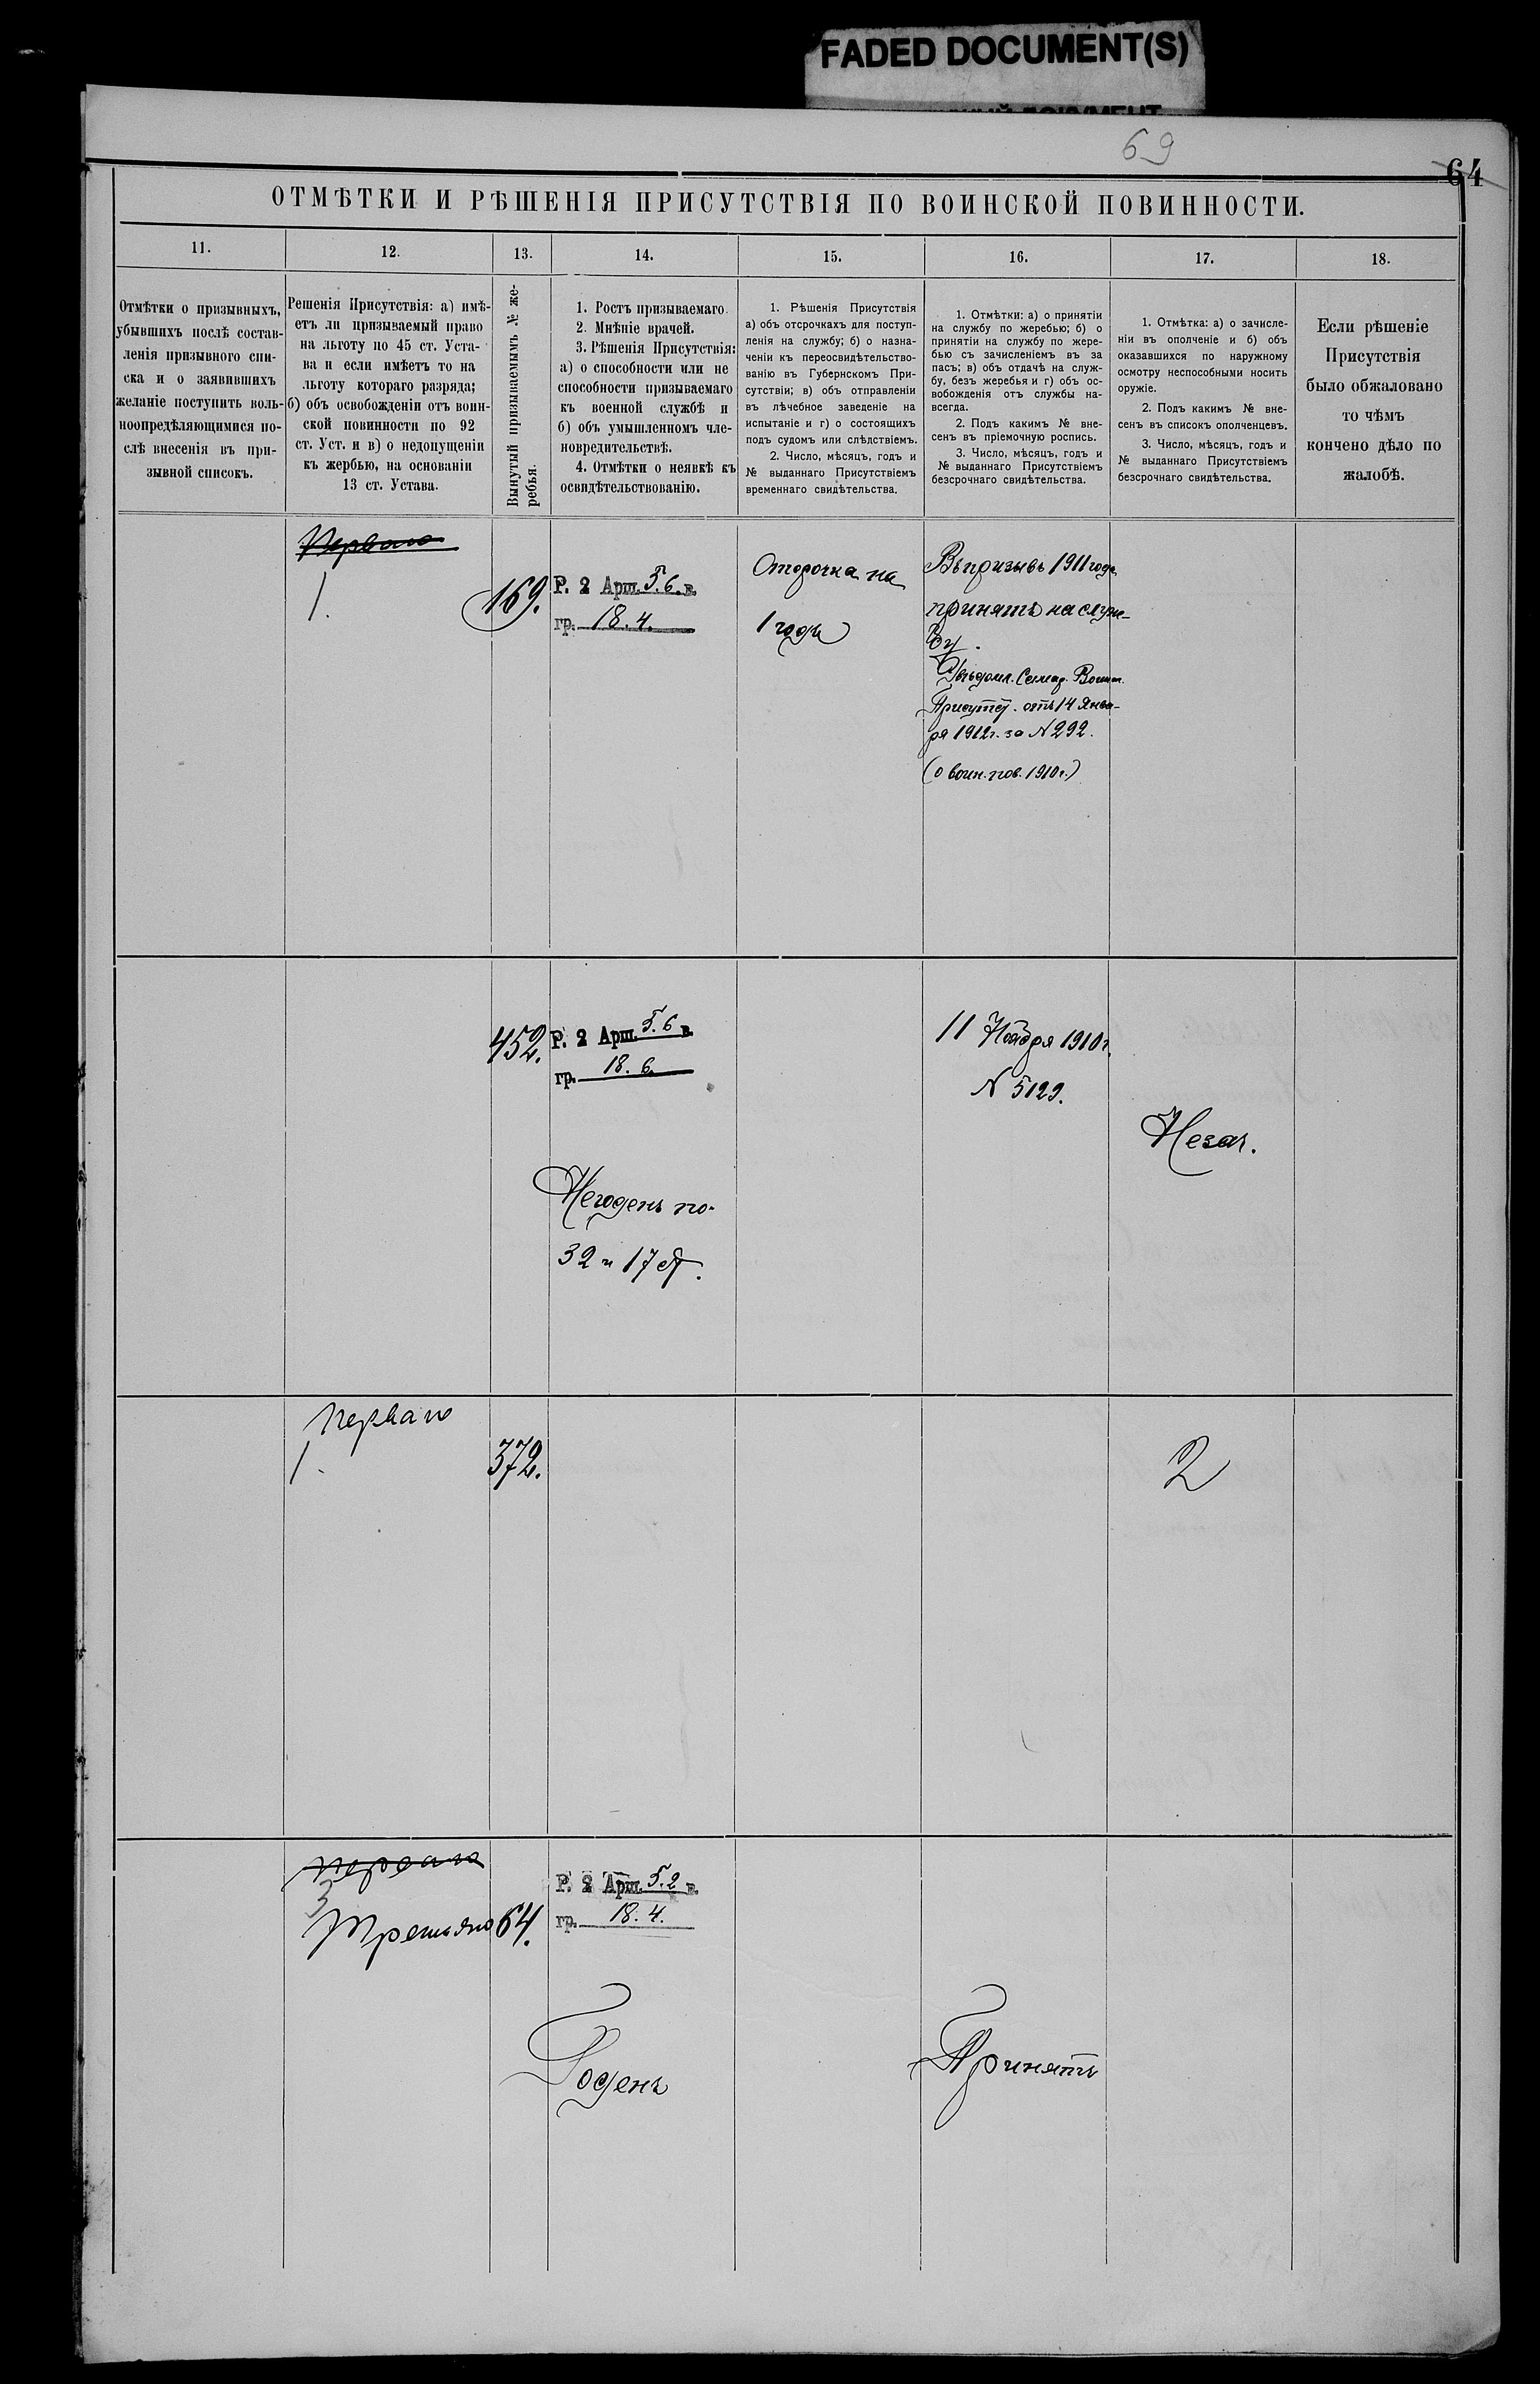 FADED DOCUMENT(S)
69
64
ОТМѢТКИ И РѢШЕНІЯ ПРИСУТСТВІЯ ПО ВОИНСКОЙ ПОВИННОСТИ.
11.
12.
13.
14.
15.
16.
17.
18.
Отмѣтки о призывныхъ,
убывшихъ послѣ состав-
ленія призывного спи-
ска и о заявившихъ
желаніе поступить воль-
ноопредѣляющимися по-
слѣ внесенія въ при-
зывной списокъ.
Решенія Присутствія: а) имѣ-
етъ ли призываемый право
на льготу по 45 ст. Уста-
ва и если имѣетъ то на
льготу котораго разряда;
б) объ освобожденіи отъ воин-
ской повинности по 92
ст. Уст. и в) о недопущеніи
къ жербью, на основаніи
13 ст. Устава.
Вынутый призываемымъ № же-
ребья.
1. Ростъ призываемаго.
2. Мнѣніе врачей.
3. Рѣшенія Присутствія:
а) о способности или не
способности призываемаго
къ военной службѣ и
б) объ умышленномъ чле-
новредительствѣ.
4. Отмѣтки о неявкѣ къ
освидѣтельствованію.
1. Рѣшенія Присутствія
а) объ отсрочкахъ для поступ-
ленія на службу; б) о назна-
ченіи къ переосвидѣтельство-
ванію въ Губернскомъ При-
сутствіи; в) объ отправленіи
въ лѣчебное заведеніе на
испытаніе и г) о состоящихъ
подъ судомъ или слѣдствіемъ.
2. Число, мѣсяцъ, годъ и
№ выданнаго Присутствіемъ
временнаго свидѣтельства.
1. Отмѣтки: а) о принятіи
на службу по жеребью; б) о
принятіи на службу по жере-
бью съ зачисленіемъ въ за
пасъ; в) объ отдачѣ на служ-
бу, безъ жеребья и г) объ ос-
вобожденія отъ службы на-
всегда.
2. Подъ какимъ № вне-
сенъ въ пріемочную роспись.
3. Число, мѣсяцъ, годъ и
№ выданнаго Присутствіемъ
безсрочнаго свидѣтельства.
1. Отмѣтка: а) о зачисле-
ніи въ ополченіе и б) объ
оказавшихся по наружному
осмотру неспособными носить
оружіе.
2. Подъ какимъ № вне-
сенъ въ списокъ ополченцевъ.
3. Число, мѣсяцъ, годъ и
№ выданнаго Присутствіемъ
безсрочнаго свидѣтельства.
Если рѣшеніе
Присутствія
было обжаловано
то чѣмъ
кончено дѣло по
жалобѣ.
Перваго
1.
169.
Р. 2 Арш. 5.6. в.
гр. 18.4.
Оторочка на
1 годъ
Въ призывъ 1911 года
принятъ на служ-
бу.
Увѣдомл. Самар. Воинск.
Присутст. отъ 14 Янва-
ря 1912 г. за N 292.
(о воин. пов. 1910 г.)
452.
Р. 2 Арш. 5.6 в.
гр. 18. 6.
Негоденъ по
32 и 17 ст.
11 Ноября 1910 г.
N 5129.
Незач.
Перваго
1.
372.
2
Перваго
3
Третьяго
64.
Р. 2 Арш. 5.2 в.
гр. 18.4.
Годенъ
Принятъ